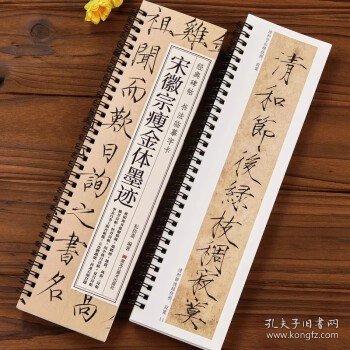 雞
祖聞而歎曰詢之書名
经典碑帖 书法临摹字卡
宋徽宗瘦金体墨迹
清和節後綠枝稠寂寞
11
孔夫子旧书网
kongfz.com